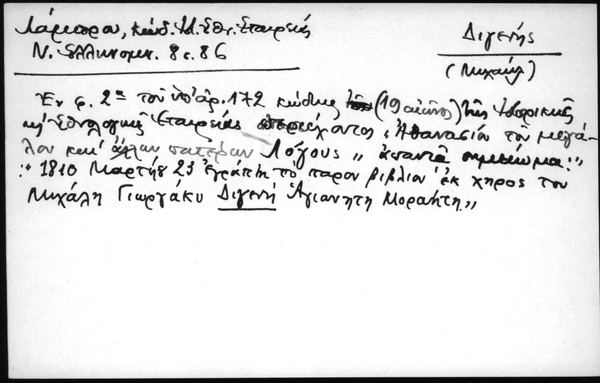 Λάμπρου, κώδ. Ἱδ. Ἐθν. Ἑταιρείας
Ν. Ἑλληνομν. 8 σ. 86
Διγενής
(Μιχαήλ)
Ἐν φ. 2α τοῦ ὑπ' ἀρ. 172 κώδικος (19 αἰῶνος) τῆς Ἱστορικῆς
κ' Ἐθνολογικῆς Ἑταιρείας περιέχοντος "Ἀθανασίου τοῦ μεγά-
λου καὶ ἄλλων πατέρων Λόγους" ἀπαντᾶ σημείωμα:
": 1810 Μαρτήου 23 ἐγράπη τὸ παρον βιβλίον ἐκ χηρος του
Μιχάλη Γιωργάκυ Διγενή Ἁγιαννητη Μοραήτη"